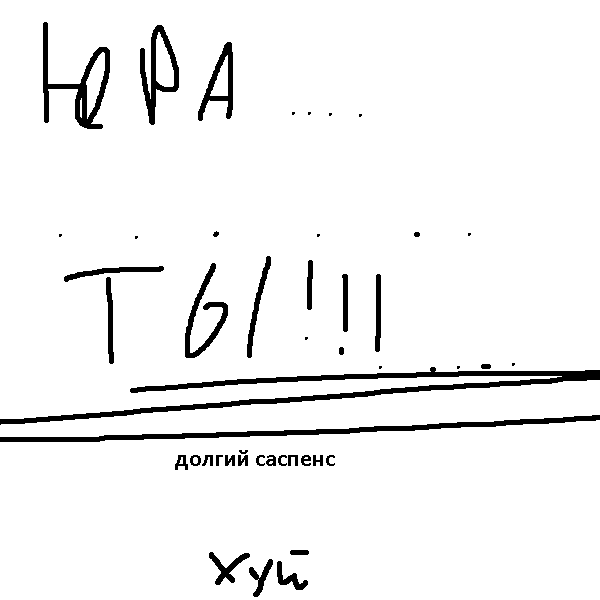 ЮРА ....
......
ТЫ!!!
.....
долгий саспенс
хуй